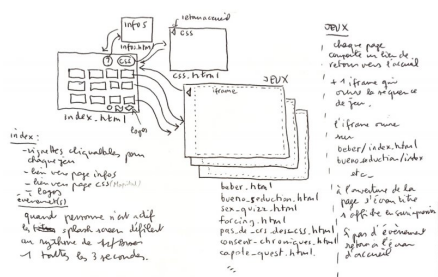 infos
infos.html
retour accueil
css
?
css
css.html
index.html
logos
JEUX
iframe
index :
- vignettes cliquables pour
chaque jeu
- lien vers page infos
- lien vers page css
- logos
évènement(s)
quand personne n'est actif
les splash screen défilent
au rythme de
1 toutes les 3 secondes.
beber.html
bueno_seduction.html
sex_quizz.html
forcing.html
pas_de_crs_dans.css.html
consent-chroniques.html
capote_quest.html
JEUX
chaque page
comporte un lien de
retour vers l'accueil
+ 1 iframe qui
ouvre la séquence
de jeu.
l'iframe ouvre
sur
beber/index.html
bueno_seduction/index
etc_
à l'ouverture de la
page 1 écran titre
s'affiche en surimpression
si pas d'évènement
retour à l'écran
d'accueil